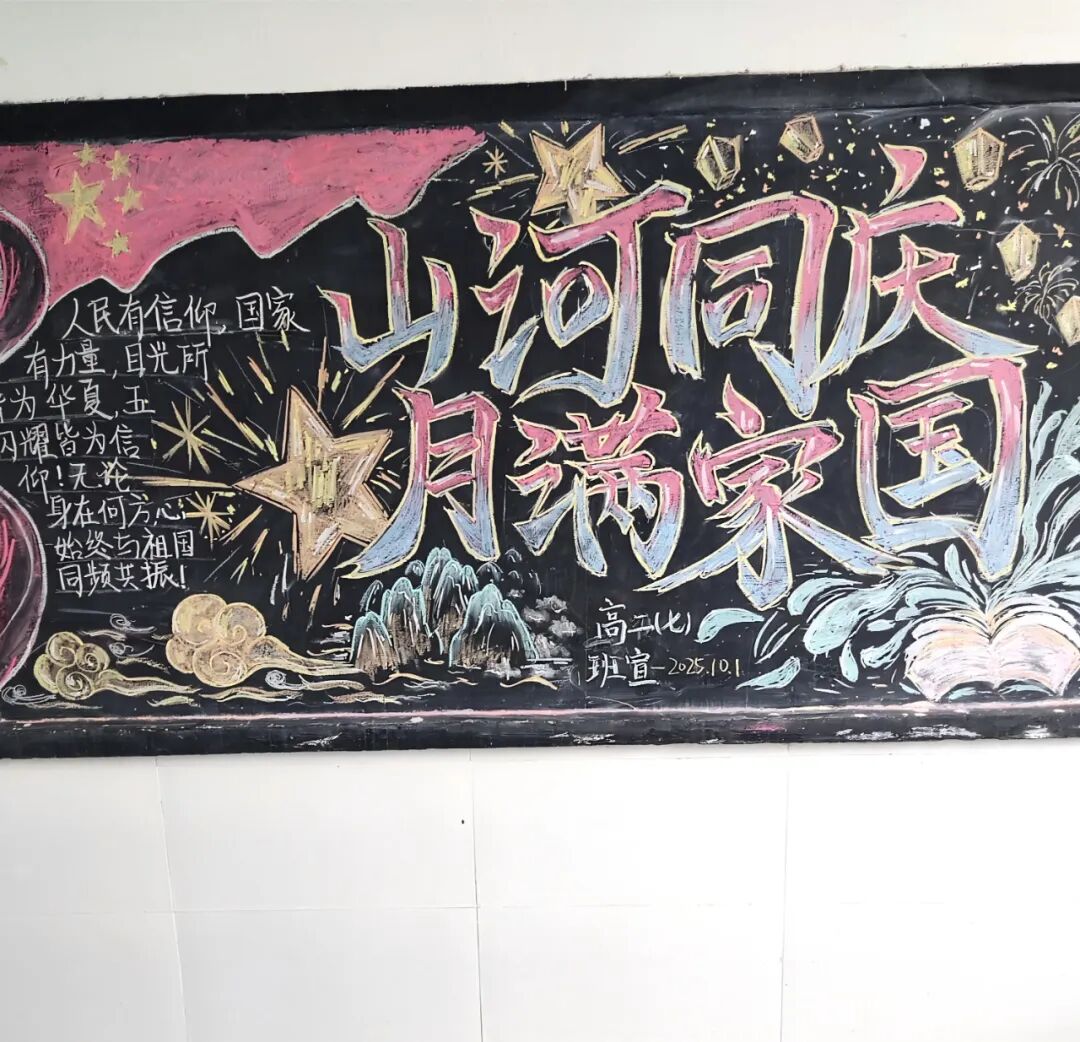 山河同庆
月满家国
人民有信仰,国家
有力量,目光所
皆为华夏,五
闪耀皆为信
仰!无论
身在何方心
始终与祖国
同频共振!
高二(七)
班宣—2025.10.1